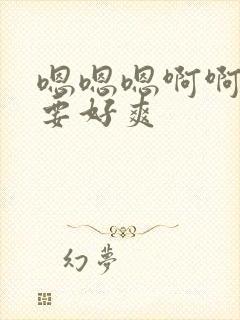 嗯嗯嗯啊啊
要好爽
幻夢